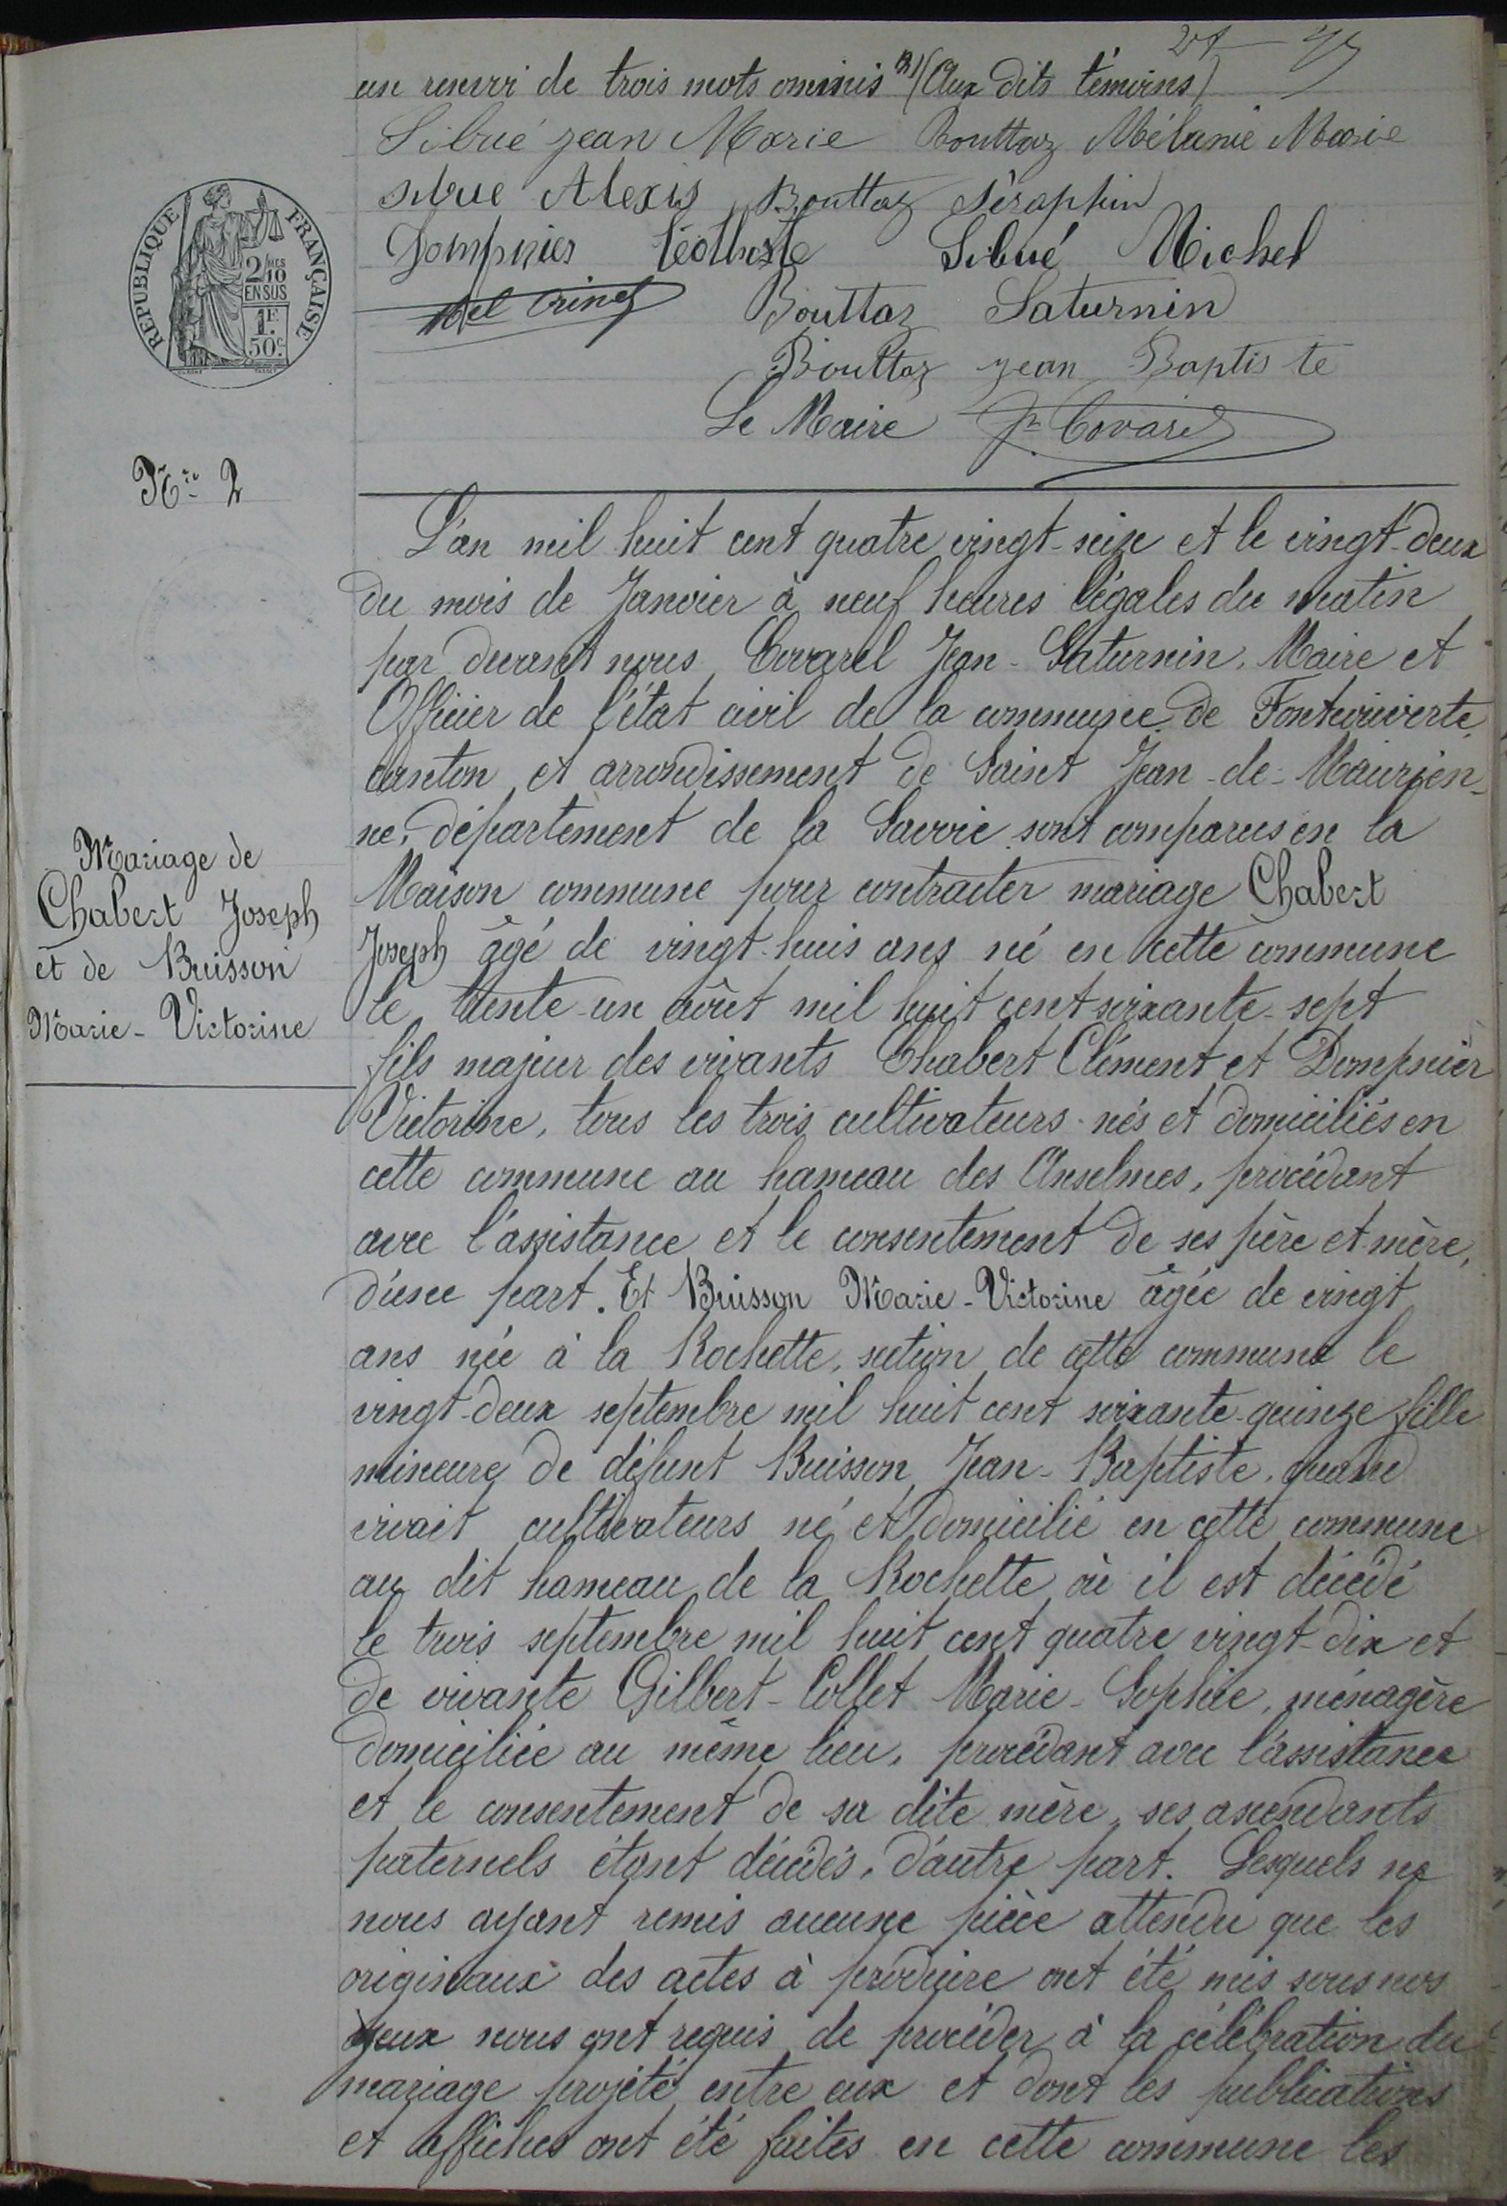 un renvoi de trois mots ominis (Aux dits témoins)
Sibué jean Marie Bouttaz Mélanie Marie
Sibué Alexis Bouttaz Séraphin
Dompnier Téothiste Sibué Michel
Bouttaz Saturnin
Bouttaz jean Baptiste
Le Maire Jn Covarel
REPUBLIQUE FRANÇAISE
2/10 MES
EN SUS
1F
50c
Nro 2
L'an mil huit cent quatre vingt-seize et le vingt-deux
du mois de Janvier à neuf heures légales du matin
par devant nous Covarel Jean-Saturnin, Maire et
Officier de l'état civil de la commune de Fontcouverte,
canton et arrondissement de Saint Jean-de-Maurien-
ne, département de la Savoie sont comparus en la
Maison commune pour contracter mariage Chabert
Joseph âgé de vingt-huis ans né en cette commune
le trente-un août mil huit cent soixante-sept
fils majeur des vivants Chabert Clément et Dompnier
Victorine, tous les trois cultivateurs nés et domiciliés en
cette commune au hameau des Anselmes, procédant
avec l'assistance et le consentement de ses père et mère,
d'une part. Et Buisson Marie-Victorine âgée de vingt
ans née à la Rochette, section de cette commune le
vingt-deux septembre mil huit cent soixante-quinze fille
mineure de défunt Buisson Jean-Baptiste, quand
vivait cultivateurs né et domicilié en cette commune
au dit hameau de la Rochette où il est décédé
le trois septembre mil huit cent quatre vingt-dix et
de vivante Gilbert-Collet Marie-Sophie, ménagère
domiciliée au même lieu, procédant avec l'assistance
et le consentement de sa dite mère, ses ascendants
paternels étant décédés, d'autre part. Lesquels ne
nous ayant remis aucune pièce attendu que les
originaux des actes à produire ont été mis sous nos
yeux nous ont requis de procéder à la célébration du
mariage projeté entre eux et dont les publications
et affiches ont été faites en cette commune les
Mariage de
Chabert Joseph
et de Buisson
Marie-Victorine